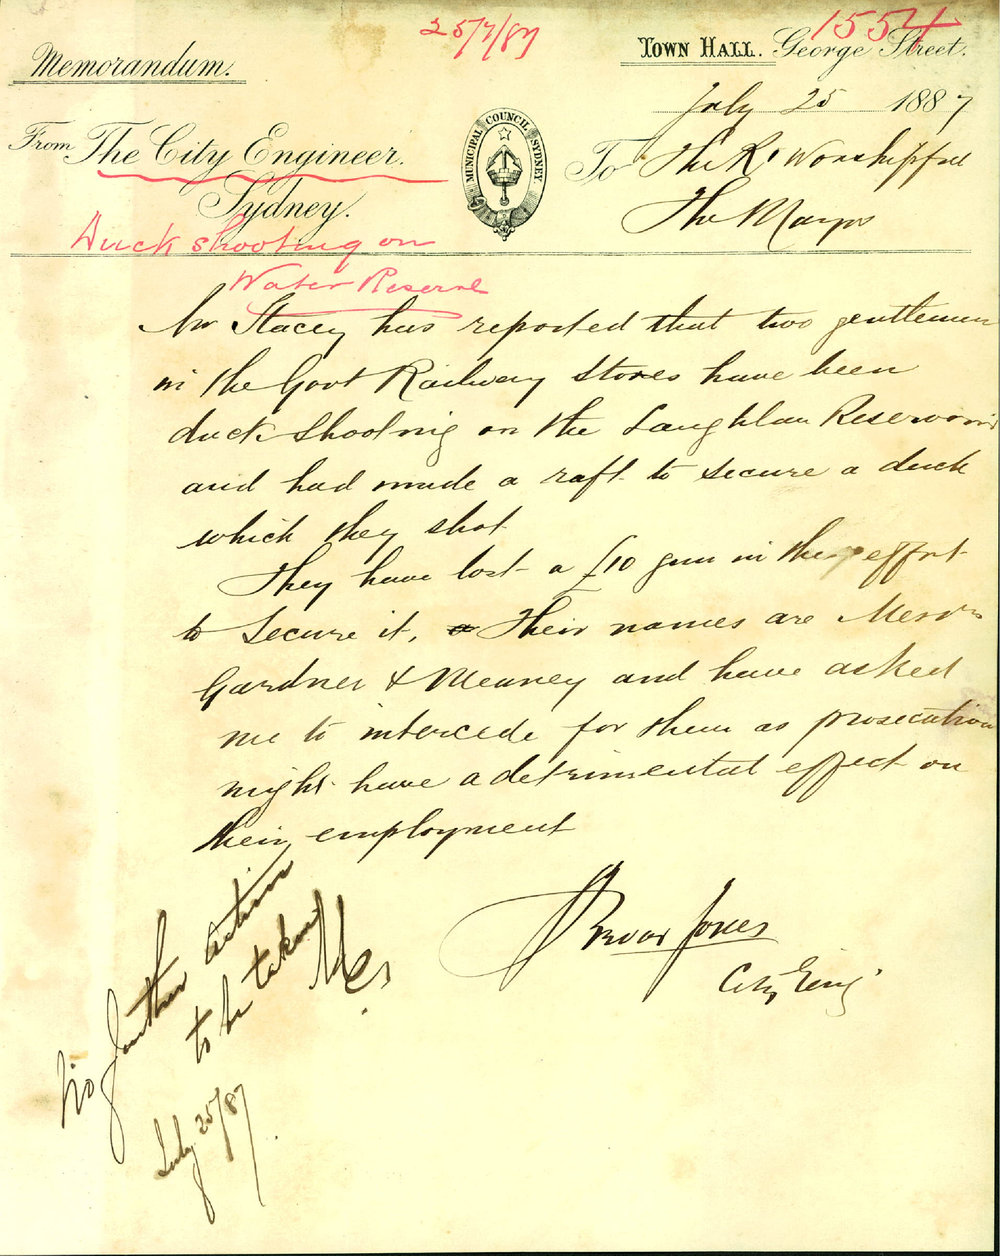 25/7/87
1554
Memorandum.
TOWN HALL. George Street.
July 25 1887
From The City Engineer.
Sydney.
MUNICIPAL COUNCIL SYDNEY.
To The Rt Worshipful
The Mayor
Duck shooting on
Water Reserve
Mr Stacey has reported that two gentlemen
in the Govt Railway Stores have been
duck shooting on the Laughlan Reservoir
and had made a raft to secure a duck
which they shot
They have lost a £10 gun in the effort
to secure it. Their names are Messrs
Gardner & Meaney and have asked
me to intercede for them as prosecution
might have a detrimental effect on
their employment
Trevor Jones
City Eng
No further action
to be taken
July 25/87